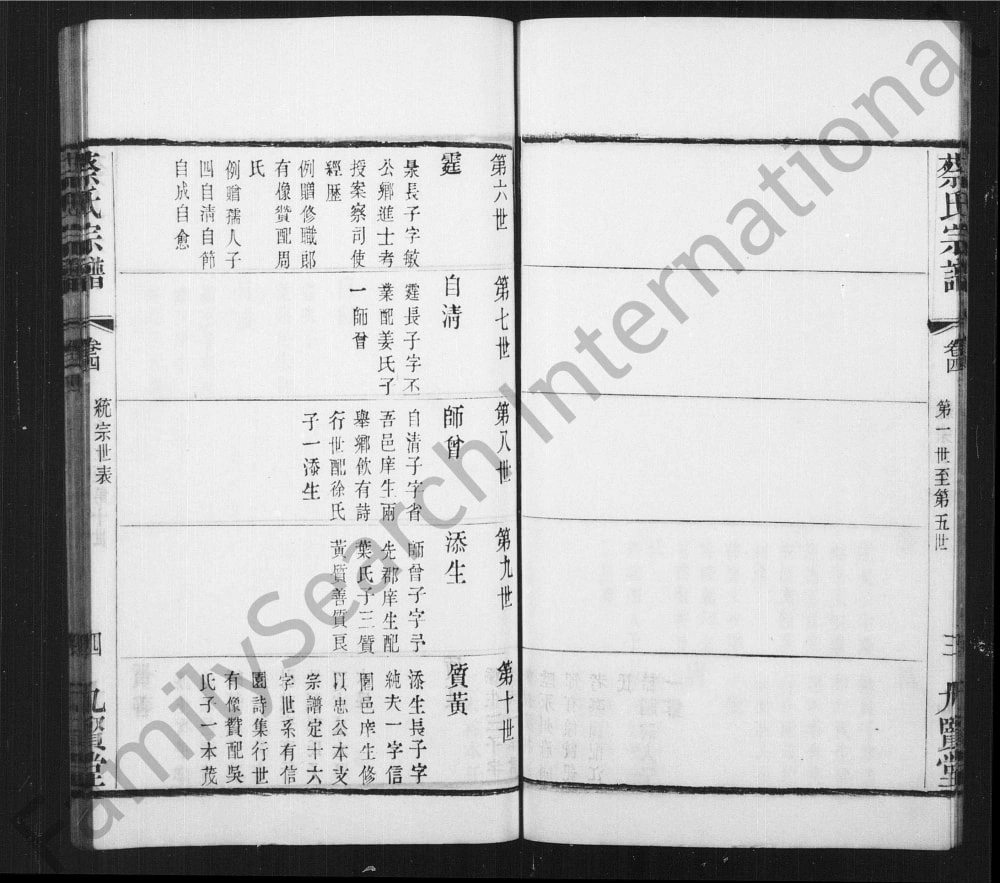 蔡氏宗譜
卷四
第一世至第五世
三
九賢堂
第六世
霆
長子字敏
公鄉進士考
授案察司使
經歷
例贈修職郎
有像贊配周
氏
例贈孺人子
四自淸自節
自成自愈
第七世
自淸
霆長子字丕
業配姜氏子
一師曾
第八世
師曾
自淸子字省
吾邑庠生兩
舉鄉飲有詩
行世配徐氏
子一添生
第九世
添生
師曾子字予
先郡庠生配
葉氏子三質
黃質善質良
第十世
質黃
添生長子字
純夫一字信
園邑庠生修
以忠公本支
宗譜定十六
字世系有信
園詩集行世
有像贊配吳
氏子一本茂
蔡氏宗譜
卷四
統宗世表
四
九賢堂
FamilySearch International